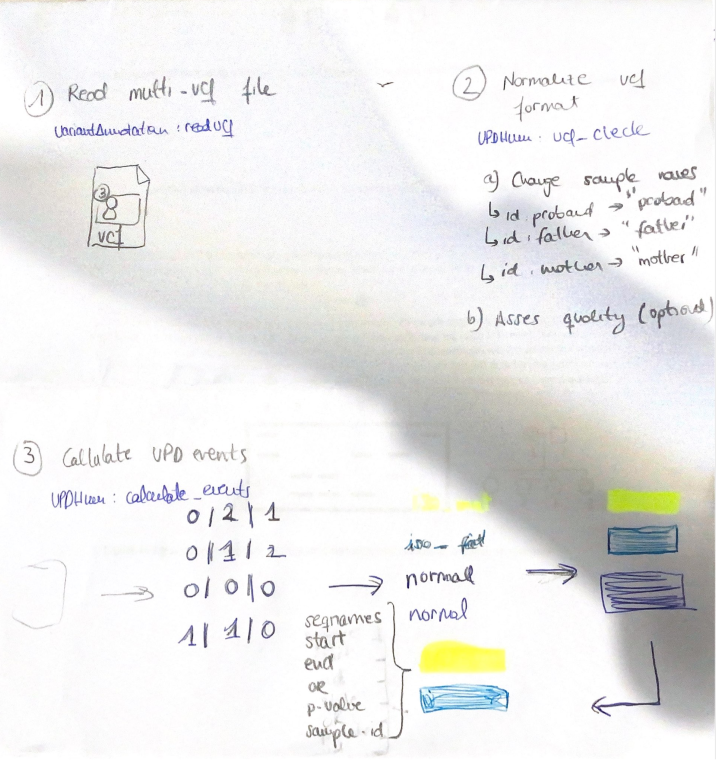 1) Read multi-vcf file
VariantAnnotation : readVcf
3
vcf
2 Normalize vcf
format
vcf_check
a) Change sample names
↳ id.proband → "proband"
↳ id.father → "father"
↳ id.mother → "mother"
b) Asses quality (optional)
3 Callulate UPD events
calculate_events
0/2/1
0/1/2
0/0/0
1/1/0
normal
normal
seqnames
start
end
OR
p-value
sample-id